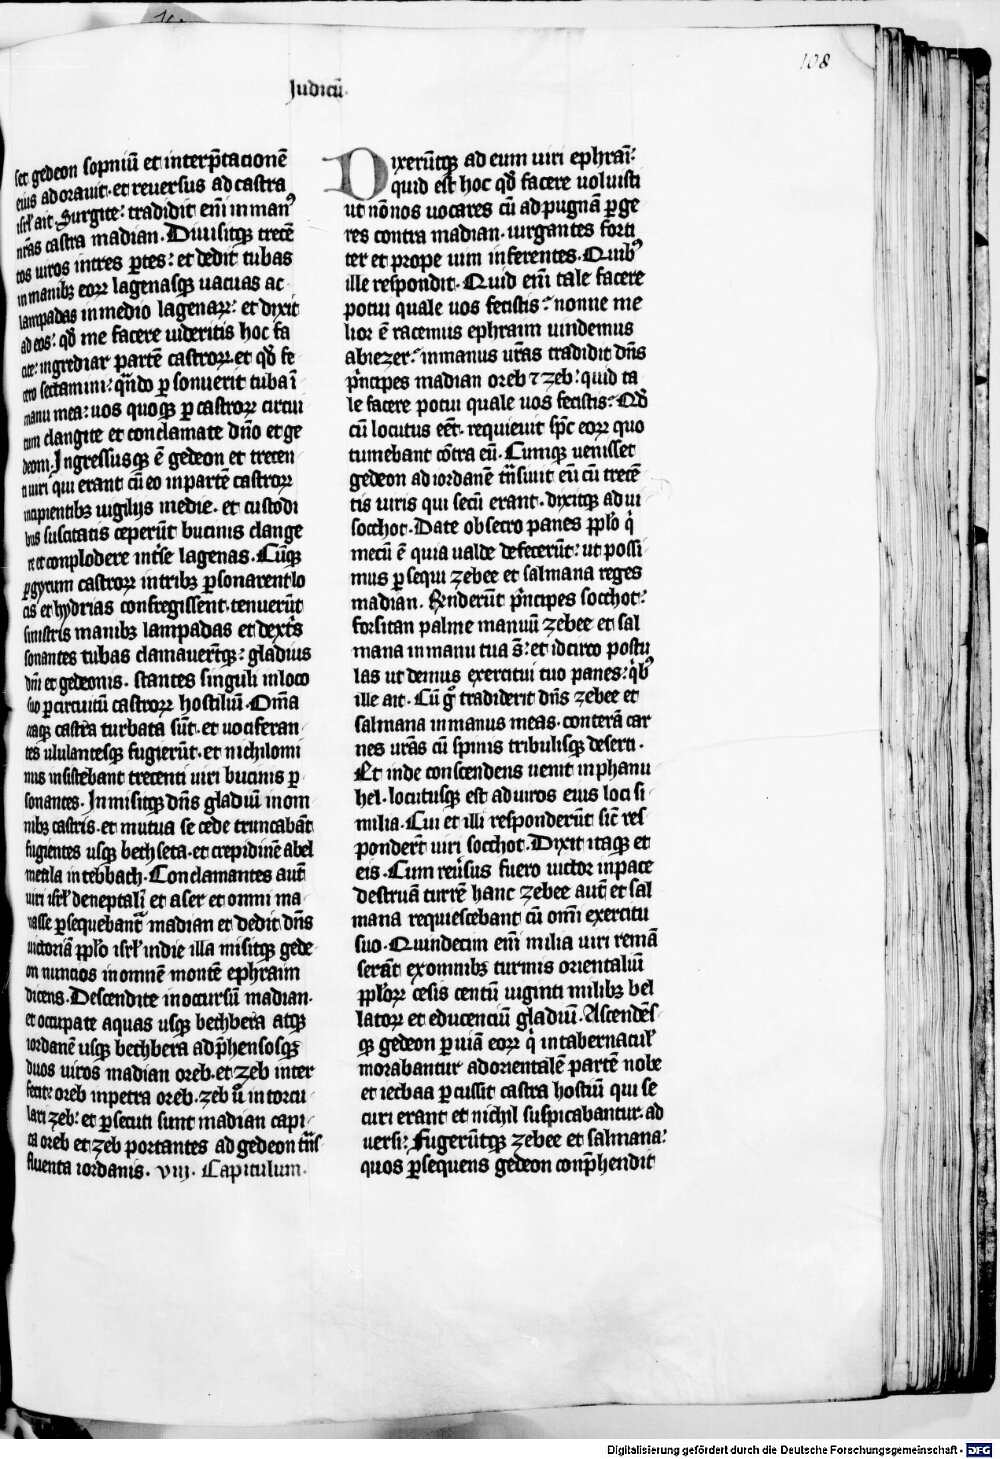 108
Judicū.
set gedeon sopniū et interp̄tacionē
eius adorauit. et reuersus ad castra
isrl̄ ait. Surgite: tradidit em̄ in man9
nr̄as castra madian. Diuisitqꝫ trecē
tos uiros in tres ꝑtes: et dedit tubas
in manibꝫ eoꝝ lagenasqꝫ uacuas ac
lampadas in medio lagenaꝝ: et dixit
ad eos: qd̄ me facere uideritis hoc fa
cite: ingrediar partē castroꝝ. et qd̄ fe
cero sectamini: qn̄do ꝑsonuerit tuba ī
manu mea: uos quoqꝫ ꝑ castroꝝ circui
tum clangite et conclamate dn̄o et ge
deom. Ingressusqꝫ ē gedeon et trecen
ti uiri qui erant cū eo in partē castroꝝ
incipientibꝫ uigilijs medie. et custodi
bus suscitatis ceperūt bucinis clange
re et conplodere int̄ se lagenas. Cūqꝫ
ꝑ gyrum castroꝝ in tribꝫ ꝑsonarent lo
cis et hydrias confregissent. tenuerūt
sinistris manibꝫ lampadas et dext̄s
sonantes tubas clamauerūtqꝫ: gladius
dn̄i et gedeonis. stantes singuli in loco
suo ꝑ circuitū castroꝝ hostiliū. Om̄a
itaqꝫ castra turbata sūt. et uociferan
tes ululantesqꝫ fugierūt. et nichilomi
nus insistebant trecenti uiri bucinis ꝑ
sonantes. Inmisitqꝫ dn̄s gladiū in om
nibꝫ castris. et mutua se cede truncabāt
fugientes usqꝫ bethseta. et crepidinē abel
meula in tebbach. Conclamantes aut̄
uiri isrl̄ de neptali et aser et omni ma
nasse ꝑsequebant̄ madian et dedit dn̄s
uictoriā ppl̄o isrl̄ in die illa misitqꝫ gede
on nuncios in omnē montē ephraim
dicens. Descendite in occursū madian.
et occupate aquas usqꝫ bethbera atqꝫ
iordanē usqꝫ bethbera adp̄hensosqꝫ
duos uiros madian oreb. et zeb inter
fecit: oreb in petra oreb. zeb u̅ in torcu
lari zeb: et ꝑsecuti sunt madian capi
ta oreb et zeb portantes ad gedeon tn̄s
fluenta iordanis. viij. Capitulum.
Dixerūtqꝫ ad eum uiri ephraī:
quid est hoc qd̄ facere uoluisti
ut nō nos uocares cū ad pugnā ꝑge
res contra madian. iurgantes forti
ter et prope uim inferentes. Quibꝫ
ille respondit. Quid em̄ tale facere
potui quale uos fecistis: nonne me
lior ē racemus ephraim uindemus
abiezer: in manus ur̄as tradidit dn̄s
p̄ncipes madian oreb ⁊ zeb: quid ta
le facere potui quale uos fecistis: Qd̄
cū locutus eēt. requieuit sp̄c eoꝝ quo
tumebant cōtra eū. Cumqꝫ uenisset
gedeon ad iordanē tn̄siuit eū cū trecē
tis uiris qui secū erant. dixitqꝫ ad ui
socchot. Date obsecro panes ppl̄o q̄
mecū ē quia ualde defecerūt: ut possi
mus ꝑsequi zebee et salmana reges
madian. Rn̄derūt p̄ncipes socchot:
forsitan palme manuū zebee et sal
mana in manu tua s̄: et idcirco postu
las ut demus exercitui tuo panes: q̄bꝫ
ille ait. Cū g̊ tradiderit dn̄s zebee et
salmana in manus meas. conterā car
nes ur̄as cū spinis tribulisqꝫ deserti.
Et inde conscendens uenit in phanu
hel. locutusqꝫ est ad uiros eius loci si
milia. Cui et illi responderūt sic̄ res
ponderūt uiri socchot. Dixit itaqꝫ et
eis. Cum reūsus fuero uictor in pace
destruā turrē hanc zebee aut̄ et sal
mana requiescebant cū om̄i exercitu
suo. Quindecim em̄ milia uiri remā
serāt ex omnibꝫ turmis orientaliū
ppl̄oꝝ cesis centū uiginti milibꝫ bel
latoꝝ et educenciū gladiū. Ascendēs
qꝫ gedeon ꝑ uiā eoꝝ q̄ in tabernacul̄
morabantur ad orientalē partē nobe
et iecbaa ꝑcussit castra hostiū qui se
curi erant et nichil suspicabantur. ad
uersi: Fugerūtqꝫ zebee et salmana:
quos ꝑsequens gedeon conp̄hendit
Digitalisierung gefördert durch die Deutsche Forschungsgemeinschaft - DFG